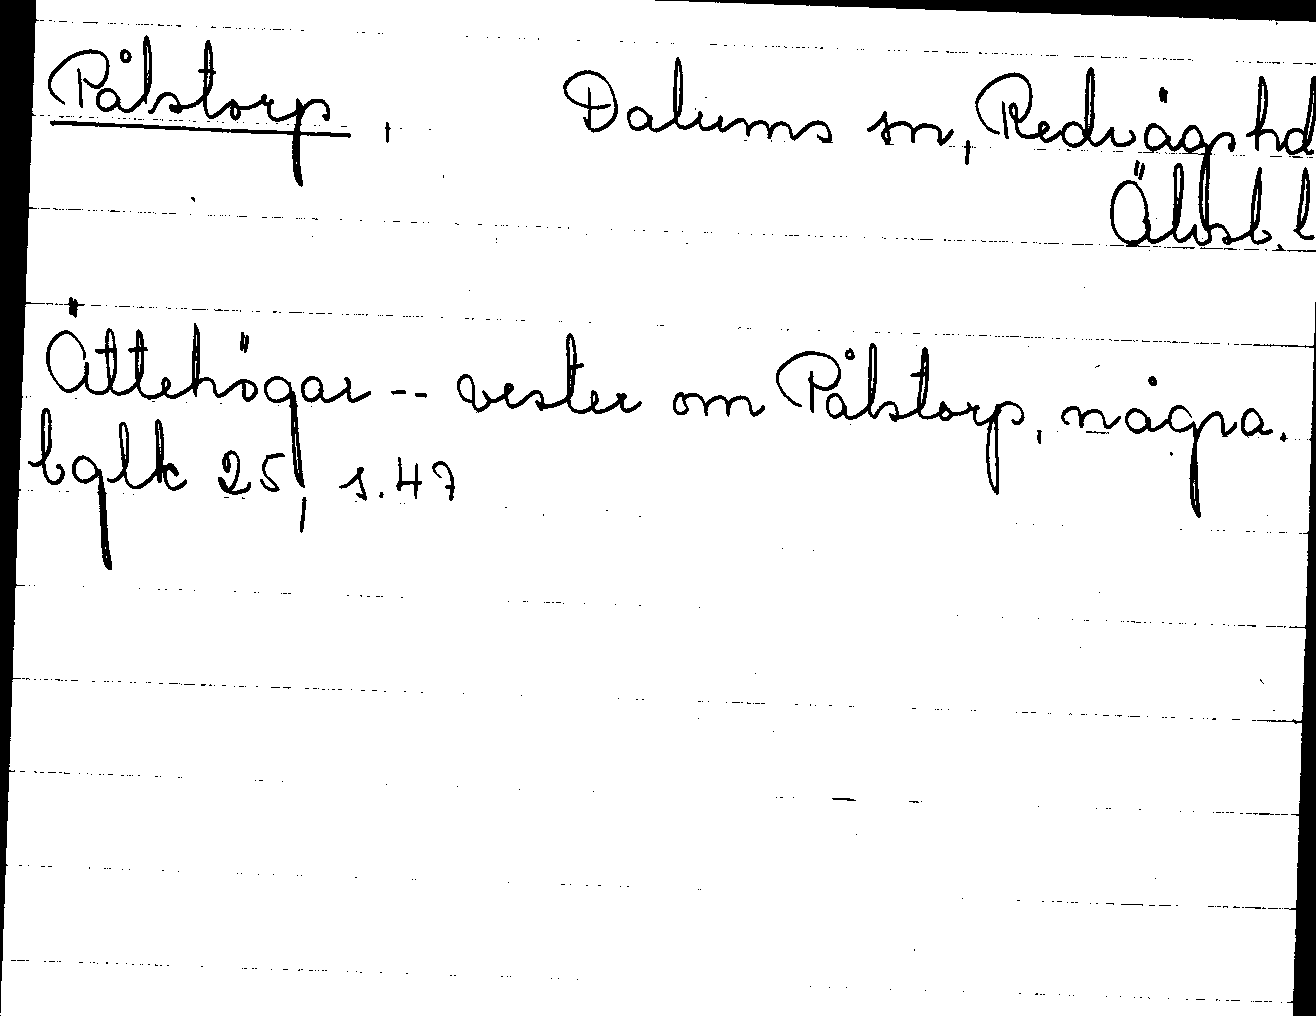 Pålstorp, Dalums sn, Redvägs hd
Älvsb. l
Ättehögar -- vester om Pålstorp, några.
bglk 25, s. 47